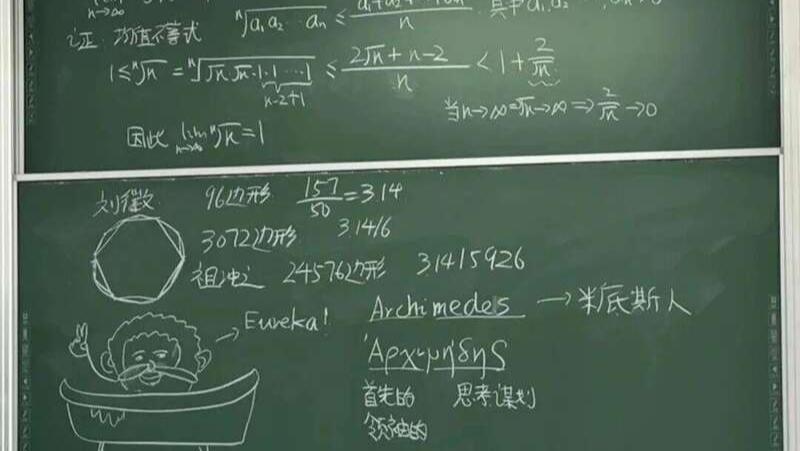 n→∞
证: 均值不等式 ⁿ√(a₁a₂⋯aₙ) ≤ n 其中 a₁, a₂
1 ≤ ⁿ√n = ⁿ√(√n √n·1·1⋯1) ≤ (2√n + n-2)/n < 1 + 2/√n
n-2个1
当 n→∞ √n→∞ ⇒ 2/√n →0
因此 lim n→∞ ⁿ√n = 1
刘徽 96边形 157/50 = 3.14
3072边形 3.1416
祖冲之 24576边形 3.1415926
Archimedes → 米底斯人
Eureka!
Ἀρχιμήδης
首先的 思考谋划
领袖的